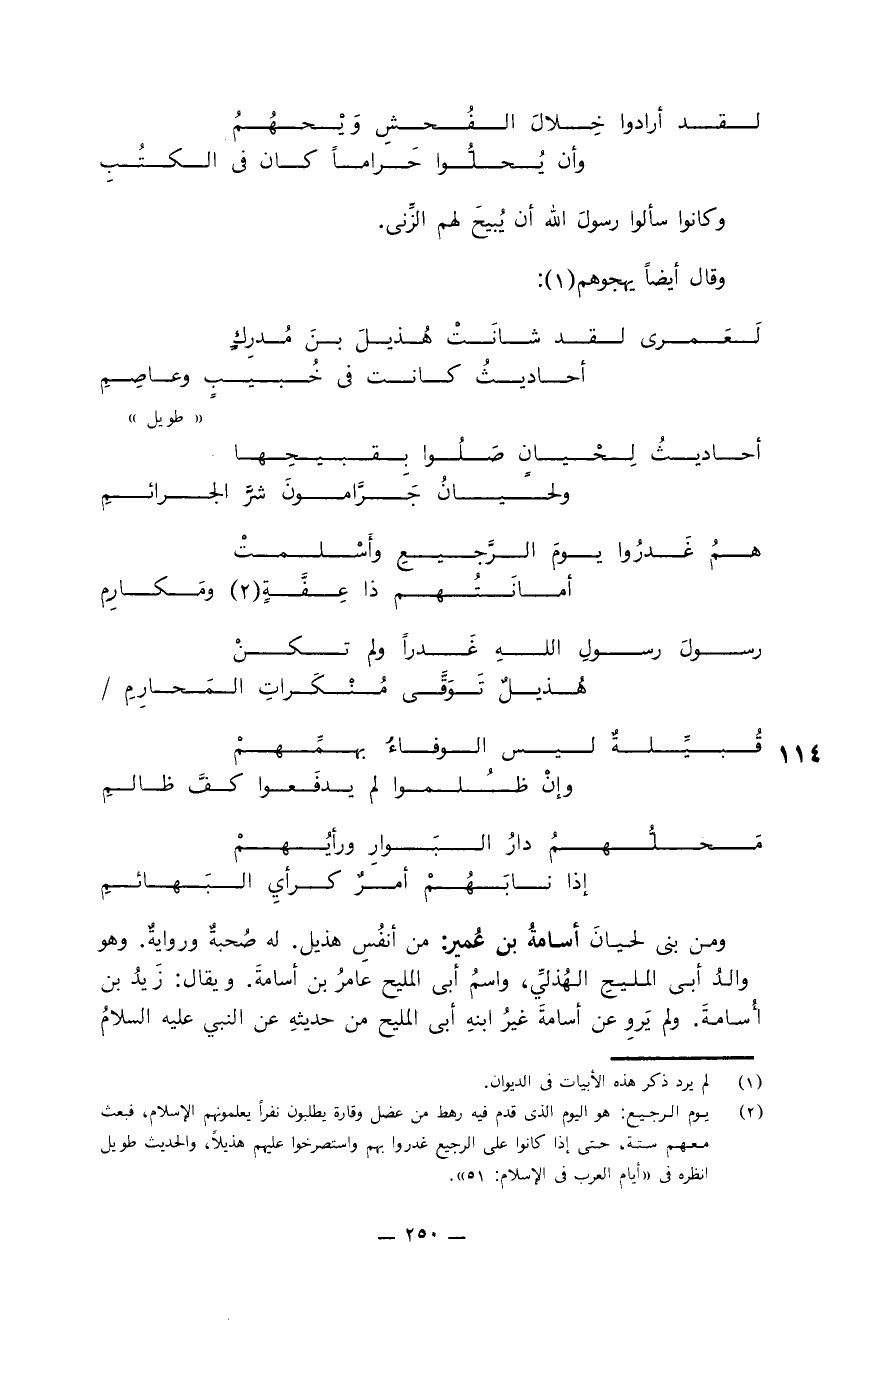 لقد أرادوا خِلالَ الفُحشِ وَيْحهُمُ
وأن يُحلُّوا حَراماً كان فى الكتُبِ
وكانوا سألوا رسولَ الله أن يُبيحَ لهم الزِّنى.
وقال أيضاً يهجوهم(١):
لَعَمرى لقد شانَتْ هُذيلَ بنَ مُدرِكٍ
أحاديثُ كانت فى خُبيبٍ وعاصِمِ
« طويل »
أحاديثُ لِحْيانٍ صَلُوا بِقبيحِها
ولحيانُ جَرَّامونَ شرَّ الجرائمِ
همُ غَدرُوا يومَ الرَّجيعِ وأَسْلمتْ
أمانَتُهم ذا عِفَّةٍ(٢) ومَكارِمِ
رسولَ رسولِ اللهِ غَدراً ولم تكنْ
هُذيلٌ تَوَقَّى مُنْكَراتِ المَحارِمِ /
١١٤ قُبيِّلةٌ ليس الوفاءُ بهمِّهمْ
وإنْ ظُلموا لم يدفَعوا كفَّ ظالمِ
مَحلُّهمُ دارُ البَوارِ ورأيُهمْ
إذا نابَهُمْ أمرٌ كرأيِ البَهائمِ
ومن بنى لحيانَ أسامةُ بن عُمير: من أنفُسِ هذيل. له صُحبةٌ وروايةٌ. وهو
والدُ أبى المليحِ الهُذليِّ، واسمُ أبى المليح عامرُ بن أسامةَ. ويقال: زَيدُ بن
أُسامةَ. ولم يَروِ عن أسامةَ غيرُ ابنهِ أبى المليح من حديثهِ عن النبي عليه السلامُ
(١) لم يرد ذكر هذه الأبيات فى الديوان.
(٢) يوم الرجيع: هو اليوم الذى قدم فيه رهط من عضل وقارة يطلبون نفراً يعلمونهم الإسلام، فبعث
معهم ستة، حتى إذا كانوا على الرجيع غدروا بهم واستصرخوا عليهم هذيلاً، والحديث طويل
انظره فى «أيام العرب فى الإسلام: ٥١».
— ٢٥٠ —